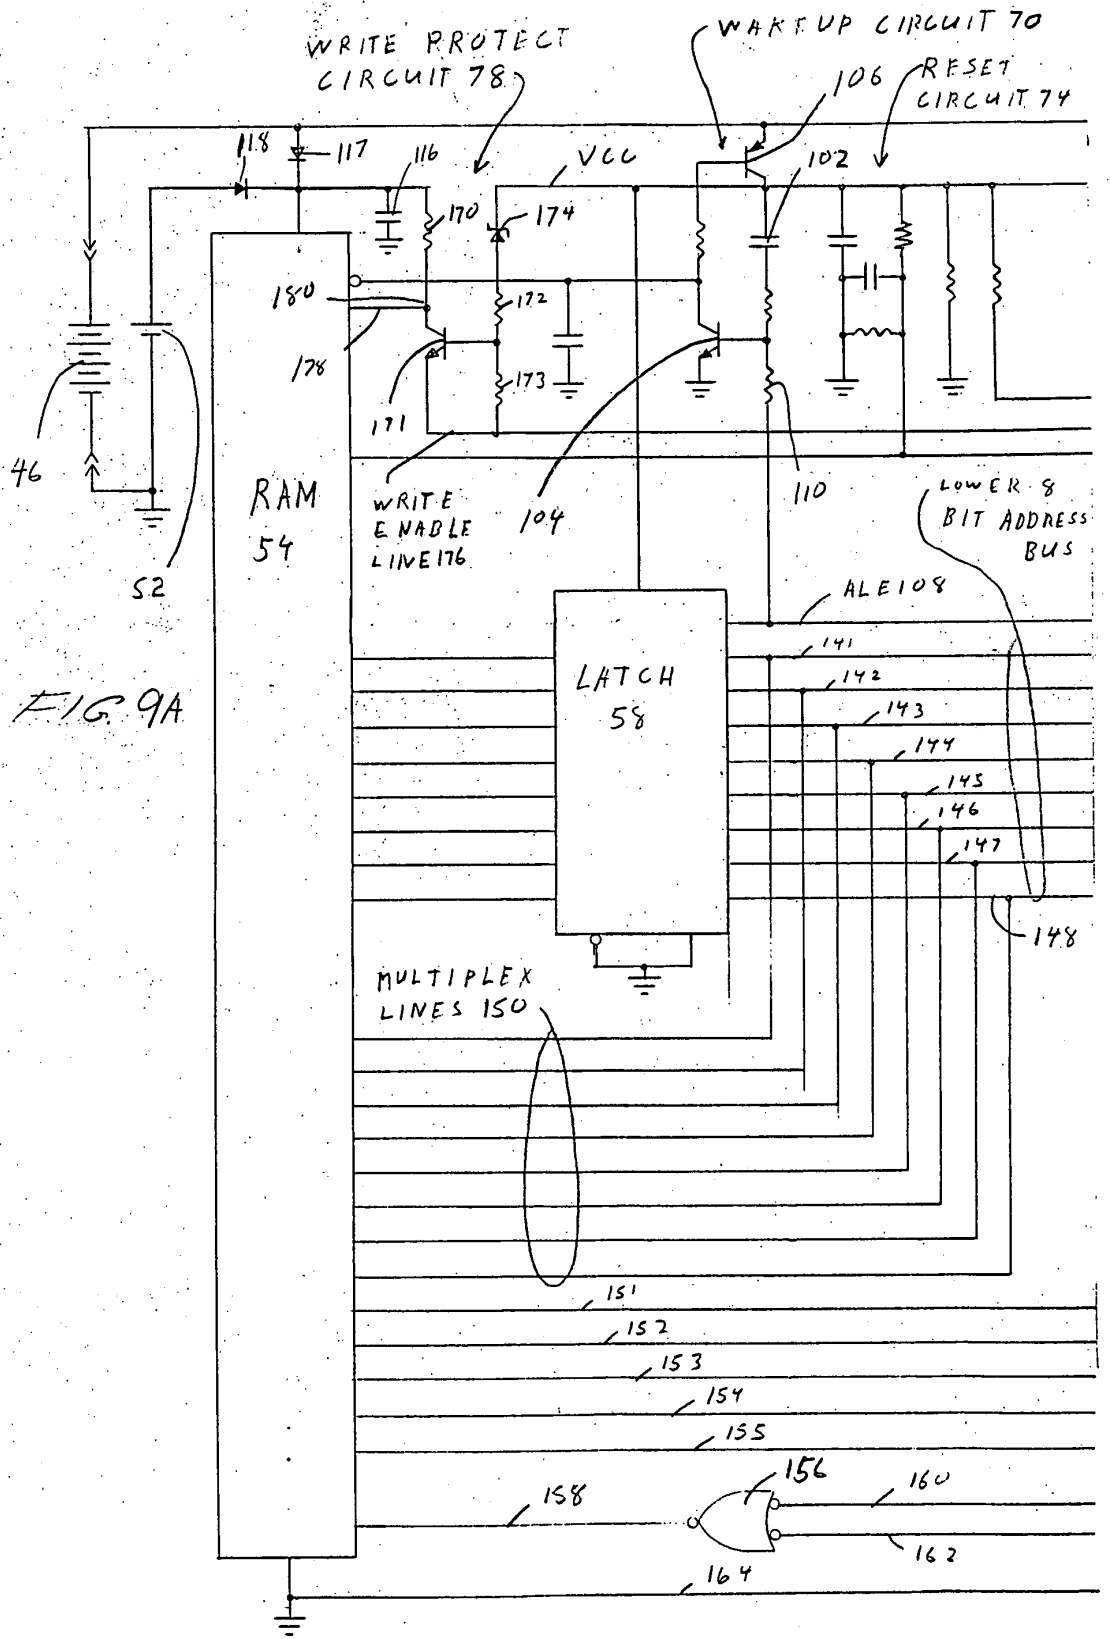 WRITE PROTECT
CIRCUIT 78
WAKEUP CIRCUIT 70
RESET
CIRCUIT 74
106
118
117
116
VCC
102
170
174
180
172
178
171
173
46
52
RAM
54
WRITE
ENABLE
LINE 176
104
110
LOWER 8
BIT ADDRESS
BUS
ALE 108
LATCH
58
141
142
143
144
145
146
147
148
FIG. 9A
MULTIPLEX
LINES 150
151
152
153
154
155
156
158
160
162
164